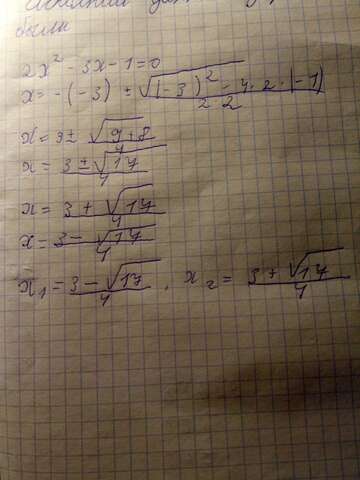 были
2x² - 3x - 1 = 0
x = -(-3) ± √(-3)² - 4 · 2 · (-1) / 2 · 2
x = 3 ± √9 + 8 / 4
x = 3 ± √17 / 4
x = 3 + √17 / 4
x = 3 - √17 / 4
x₁ = 3 - √17 / 4 , x₂ = 3 + √17 / 4